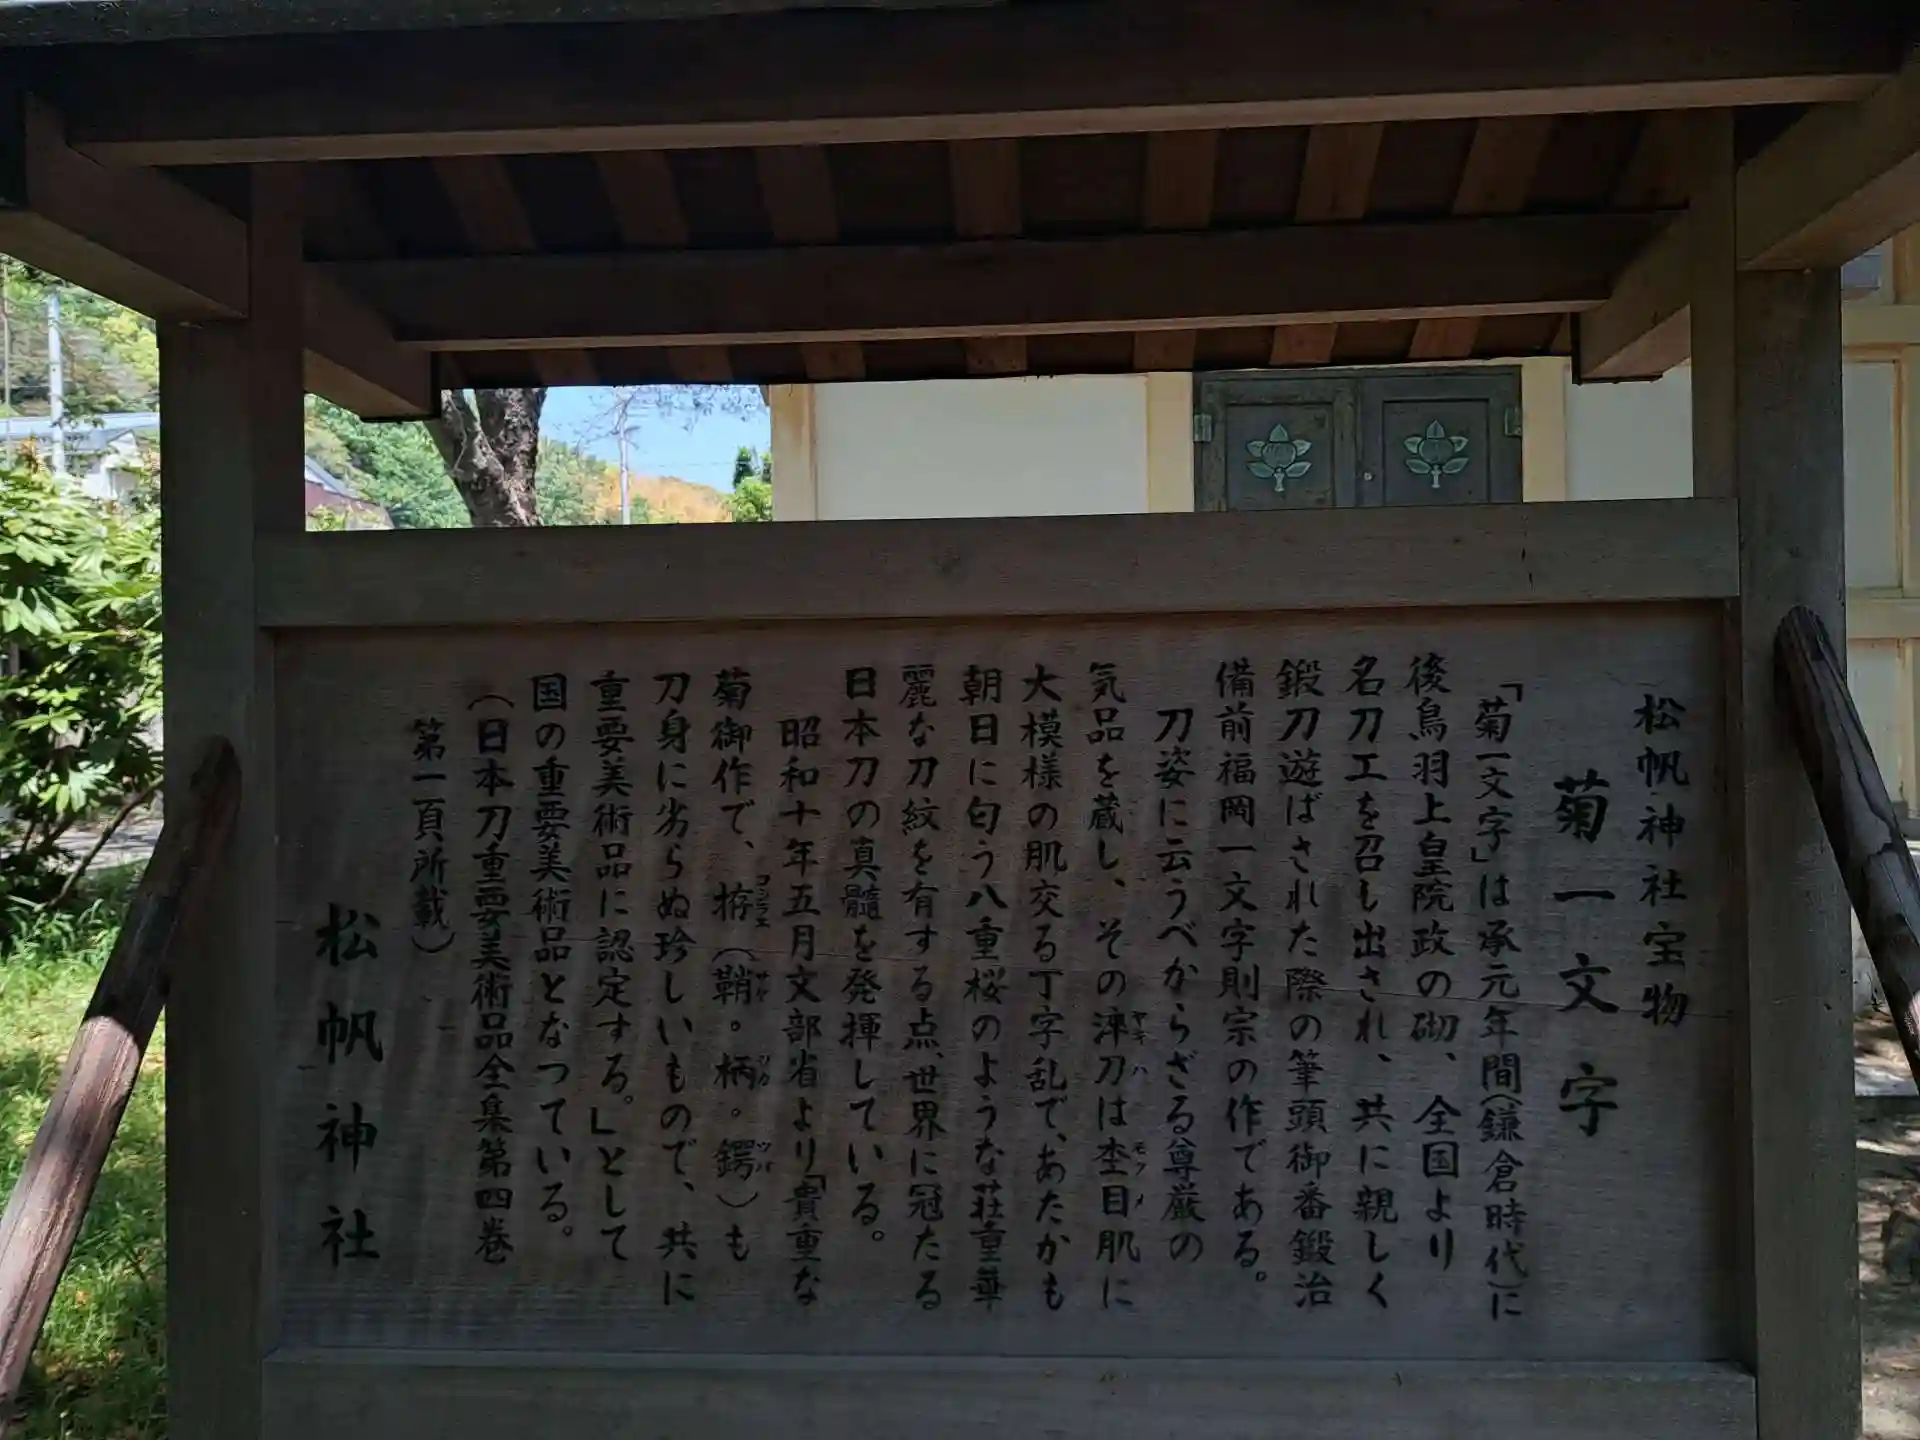 松帆神社宝物
菊一文字
「菊一文字」は承元年間(鎌倉時代)に
後鳥羽上皇院政の砌、全国より
名刀工を召し出され、共に親しく
鍛刀遊ばされた際の筆頭御番鍛治
備前福岡一文字則宗の作である。
刀姿に云うべからざる尊厳の
気品を蔵し、その淬刀は杢目肌に
ヤキハ
モクメ
大模様の肌交る丁字乱で、あたかも
朝日に匂う八重桜のような荘重華
麗な刀紋を有する点、世界に冠たる
日本刀の真髓を発揮している。
昭和十年五月文部省より「貴重な
菊御作で、拵(鞘。柄。鍔)も
コシラエ
サヤ
ツカ
ツバ
刀身に劣らぬ珍しいもので、共に
重要美術品に認定する。」として
国の重要美術品となつている。
(日本刀重要美術品全集第四巻
第一頁所載)
松帆神社